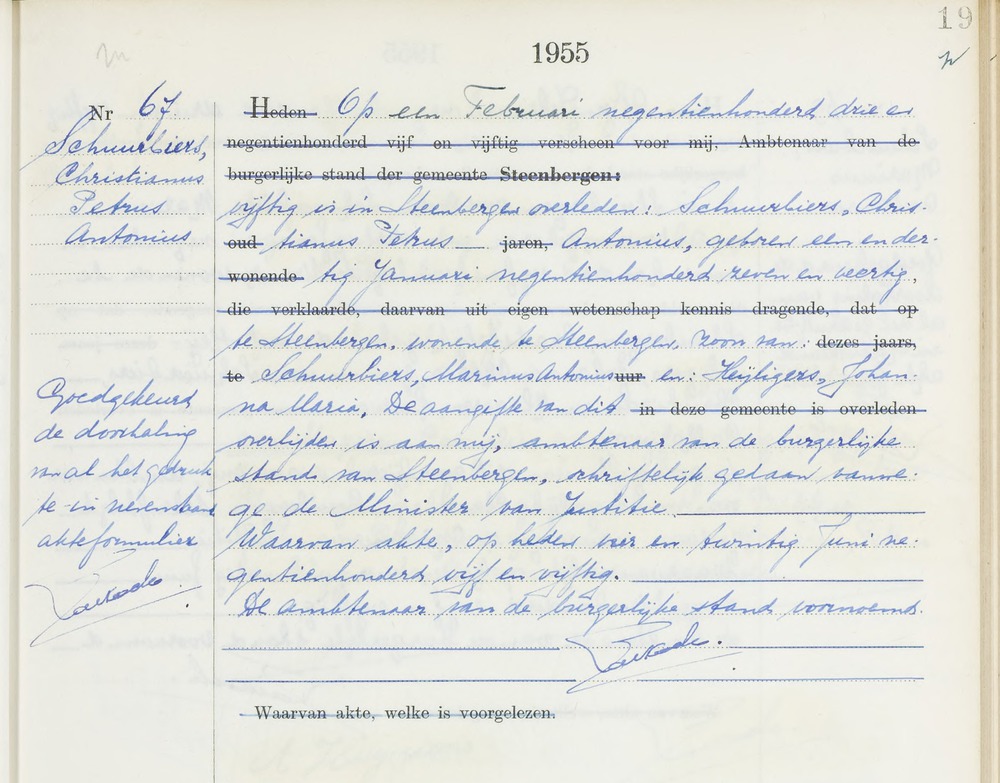 19
1955
Nr 67
Schuurbiers,
Christianus
Petrus
Antonius
Goedgekeurd
de doorhaling
van al het gedruk
te in nevenstaand
akteformulier
Heden Op een Februari negentienhonderd drie en
negentienhonderd vijf en vijftig verscheen voor mij, Ambtenaar van de
burgerlijke stand der gemeente Steenbergen:
vijftig is in Steenbergen overleden: Schuurbiers, Chris-
oud tianus Petrus — jaren, Antonius, geboren een en der-
wonende tig Januari negentienhonderd zeven en veertig,
die verklaarde, daarvan uit eigen wetenschap kennis dragende, dat op
te Steenbergen, wonende te Steenbergen, zoon van: dezes jaars,
te Schuurbiers, Marinus Antonius uur en: Heijligers, Johan-
na Maria. De aangifte van dit in deze gemeente is overleden
overlijden is aan mij, ambtenaar van de burgerlijke
stand van Steenbergen, schriftelijk gedaan vanwe-
ge de Minister van Justitie.
Waarvan akte, op heden vier en twintig Juni ne-
gentienhonderd vijf en vijftig.
De ambtenaar van de burgerlijke stand voornoemd.
Waarvan akte, welke is voorgelezen.